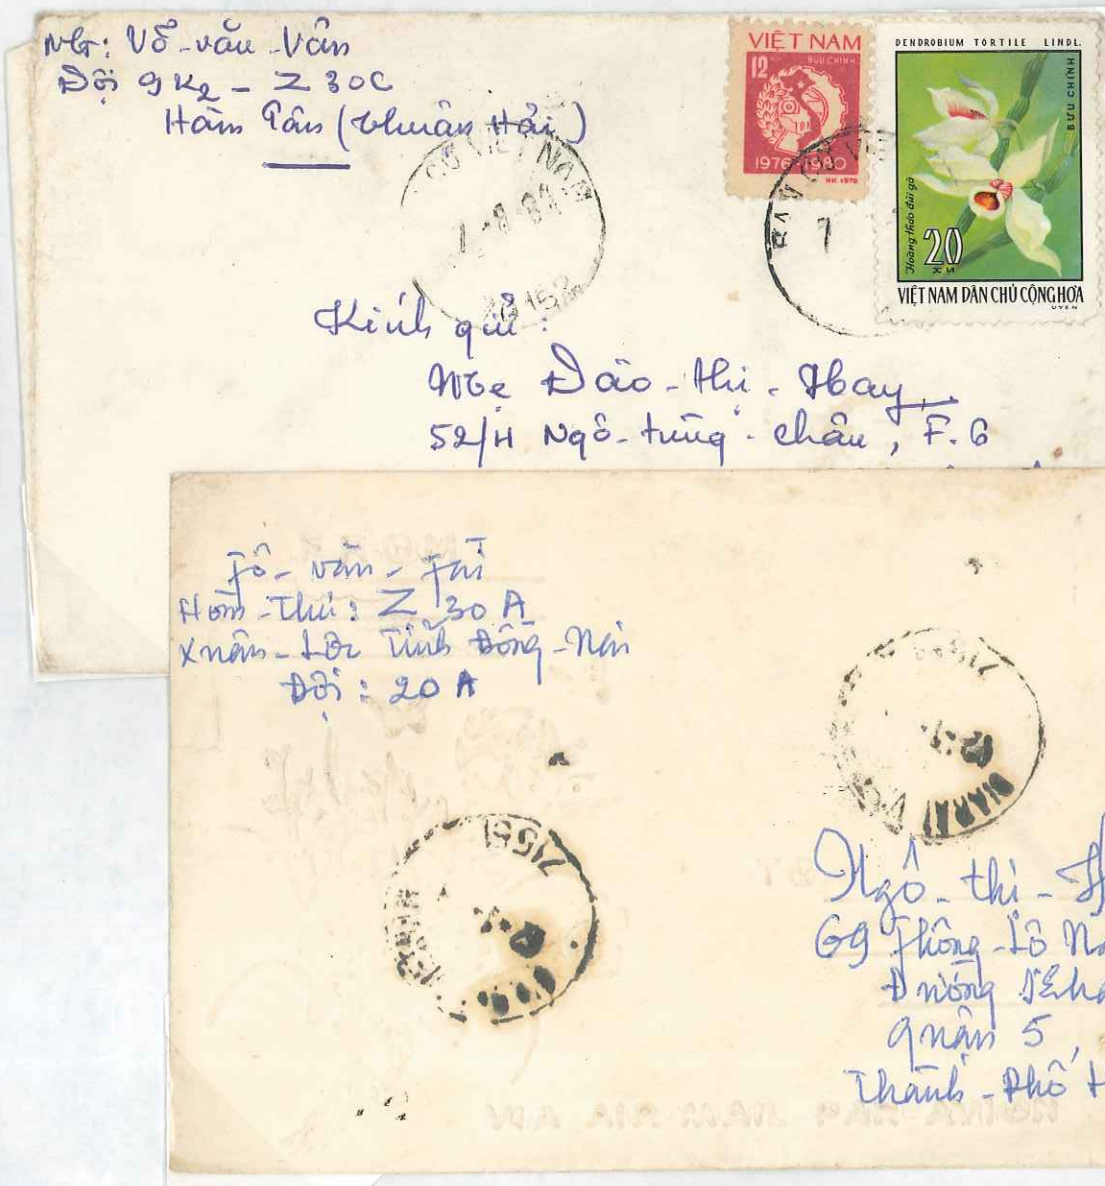 NG: Võ-văn-Vân
Đội 9K2 - Z30C
Hàm Tân (Thuận Hải)
VIỆT NAM
12 XU
BƯU CHÍNH
1976-1980
DENDROBIUM TORTILE LINDL.
BƯU CHÍNH
Hoàng thảo đùi gà
20
XU
VIỆT NAM DÂN CHỦ CỘNG HÒA
CỜ VIỆT NAM
7
Kính gửi:
Mẹ Đào-thị-Hay
52/H Ngô-tùng-châu, F.6
Tô-văn-Tài
Hòm-Thư: Z 30 A
Xuân-Lộc Tỉnh Đồng-Nai
Đội: 20 A
Ngô-thị-H
69 Thông-Lô
Đường
Quận 5,
Thành-Phố H